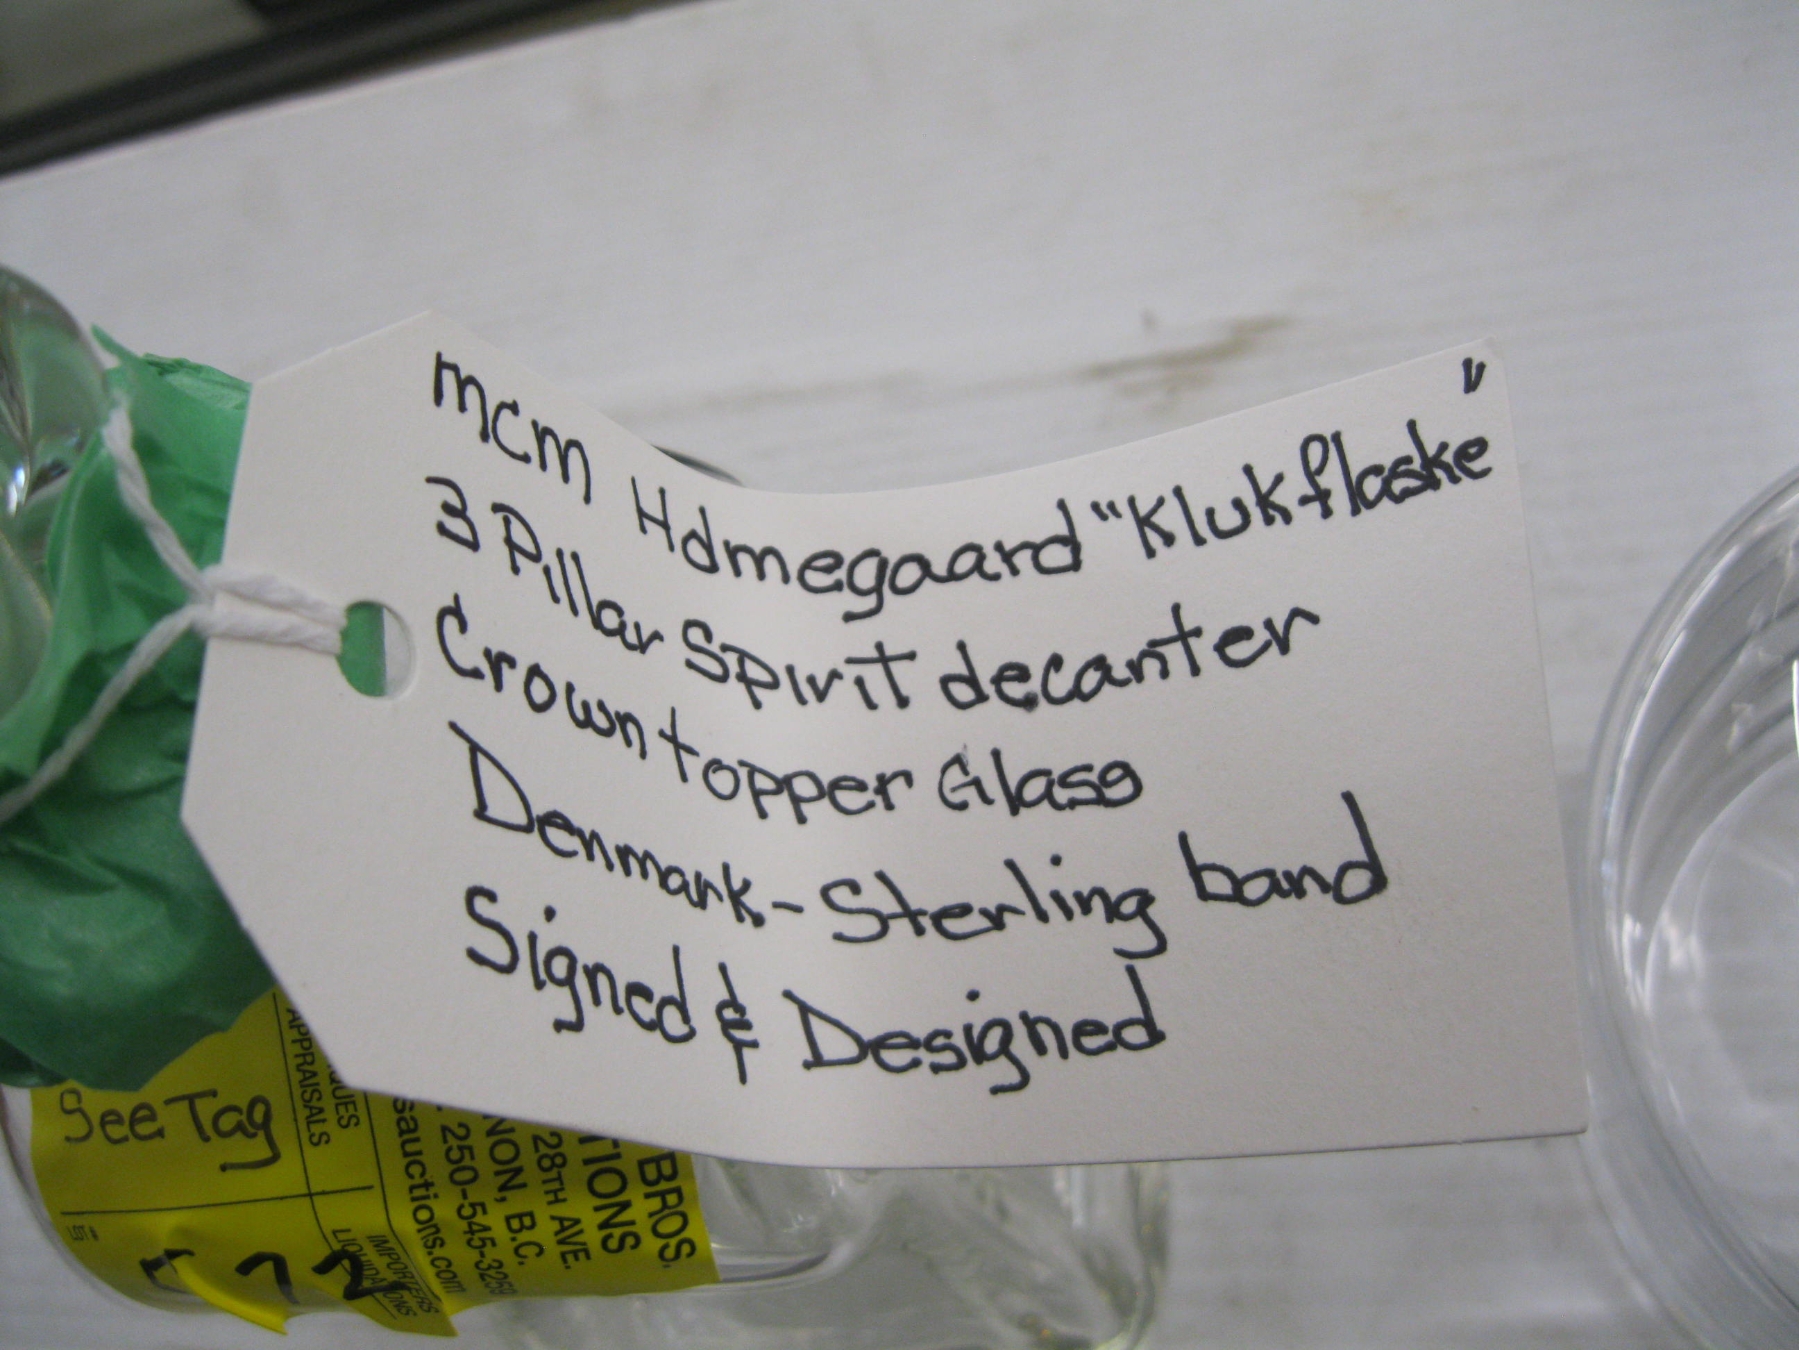 mcm Holmegaard "Klukflaske"
3 Pillar Spirit decanter
Crown topper Glass
Denmark - Sterling band
Signed & Designed
See Tag
BROS.
TIONS
28TH AVE.
NON, B.C.
250-545-3259
sauctions.com
QUES
APPRAISALS
IMPORTERS
LIQUIDATIONS